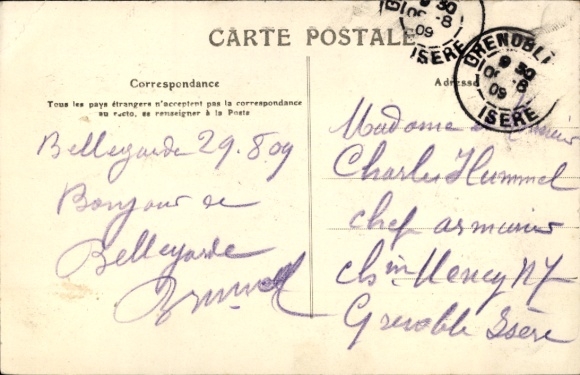 CARTE POSTALE
Correspondance
Tous les pays étrangers n'acceptent pas la correspondance
au recto, se renseigner à la Poste
Bellegarde 29.8 09
Bonjour de
Bellegarde
Adresse
GRENOBLE
9 30
8
09
ISÈRE
9 30
8
09
ISÈRE
Madame
Charles Hummel
chef armurier
Grenoble Isère